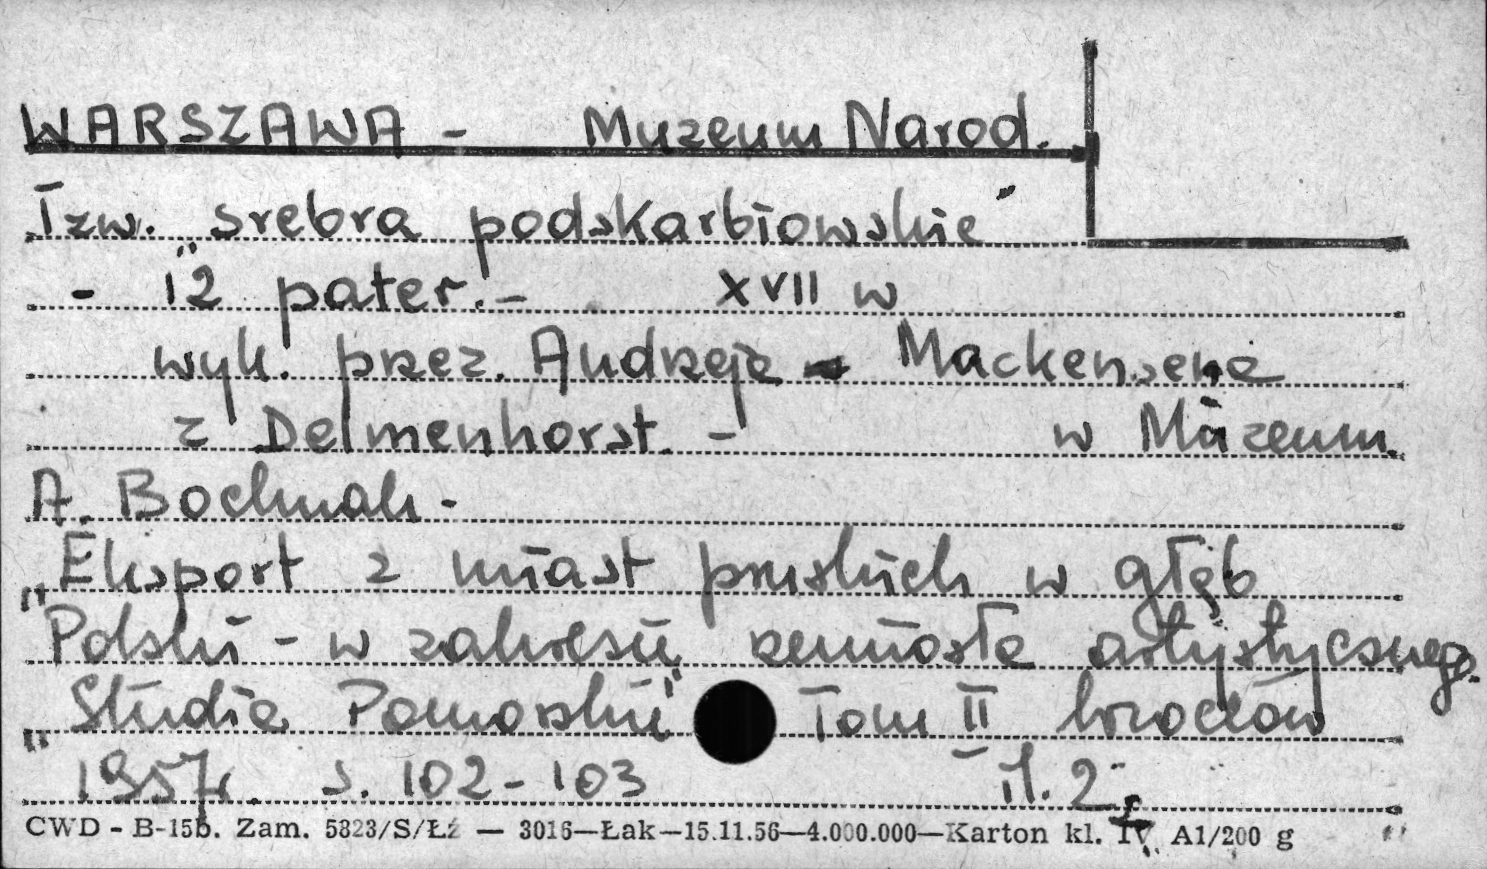 WARSZAWA - Muzeum Narod.
Tzw. "srebra podskarbiowskie"
- 12 pater. - XVII w
wyk. przez. Andrzeja Mackensena
z Delmenhorst. - w Muzeum.
A. Bochnak -
"Eksport z miast pruskich w głęb
Polski - w zakresie rzemiosła artystycznego.
"Studia Pomorskie" Tom II Wrocław
1957 r. s. 102-103 il. 2.
CWD - B-15b. Zam. 5823/S/Łź — 3016—Łak—15.11.56—4.000.000—Karton kl. IV A1/200 g